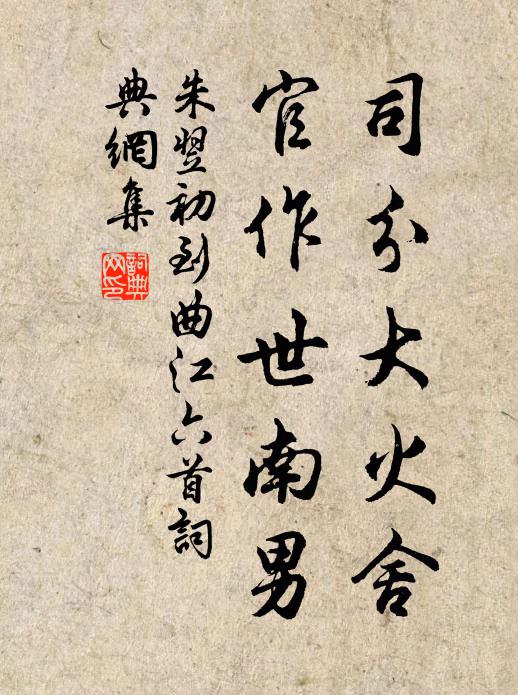 司分大火舍
官作世南男
朱翌初到曲江六首詞
典網集
詞典
网印